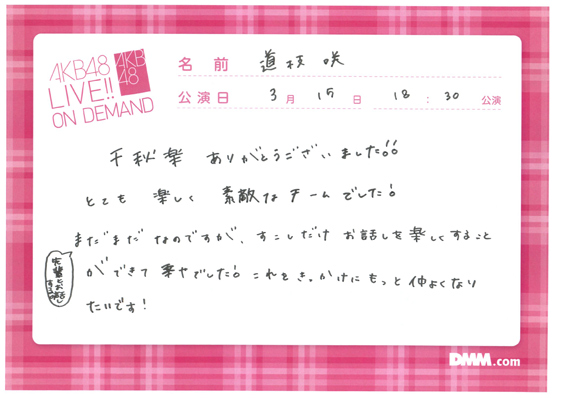 AKB48
LIVE!!
ON DEMAND
AKB
48
名前 道枝咲
公演日 3月15日 18:30公演
千秋楽 ありがとうございました!!
とても 楽しく 素敵なチームでした!
まだまだ なのですが、すこしだけ お話しを楽しくすること
ができて 幸せでした! これをきっかけにもっと仲よくなり
先輩とお話しする
たいです!
DMM.com